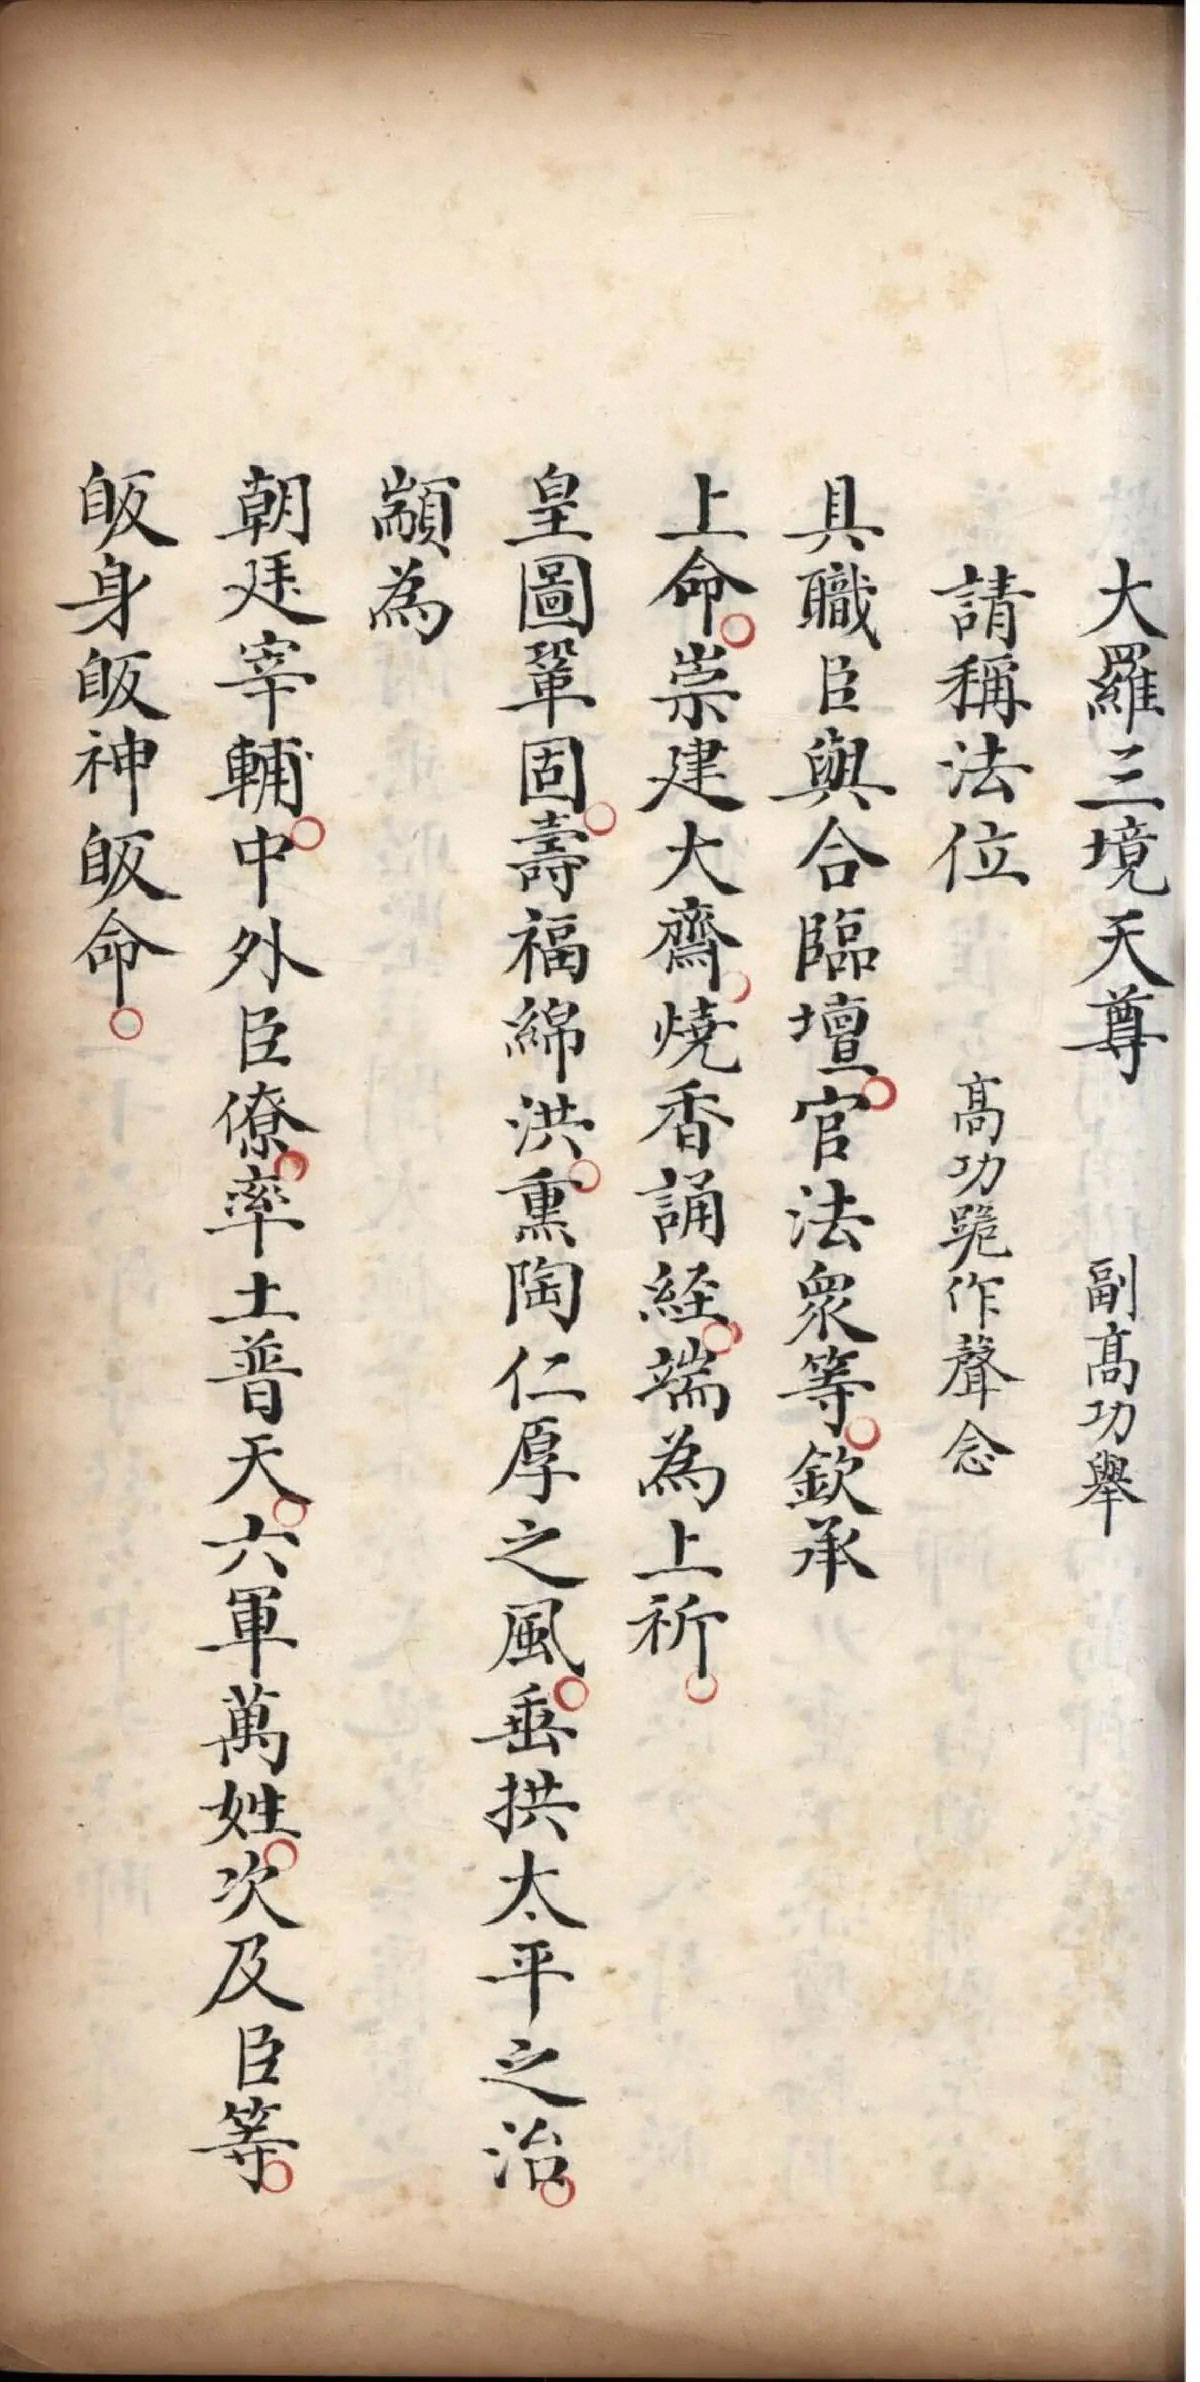 大羅三境天尊 副高功舉
請稱法位 高功跪作聲念
具職臣與合臨壇○官法眾等○欽承
上命○崇建大齋○燒香誦経○端為上祈○
皇圖鞏固○壽福綿洪○熏陶仁厚之風○垂拱太平之治○
顓為
朝廷宰輔○中外臣僚○率土普天○六軍萬姓○次及臣等○
皈身皈神皈命○